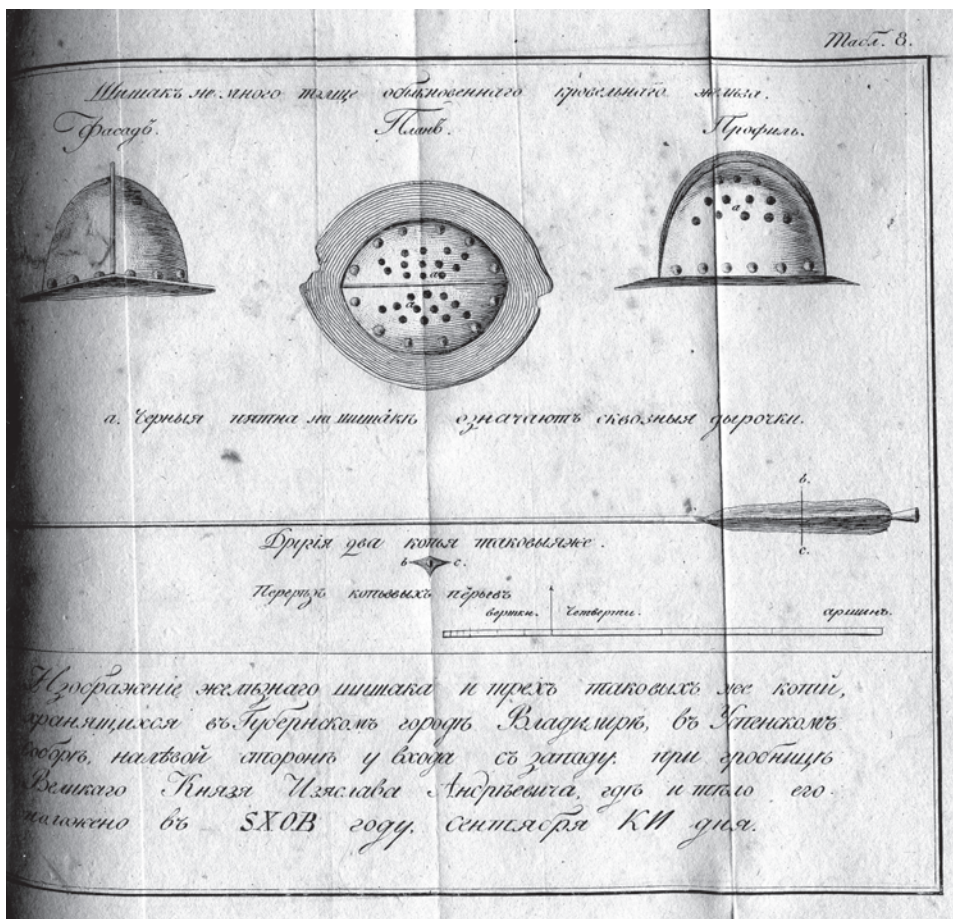 Табл. 8.
Шишакъ не много толще обыкновеннаго кровельнаго желѣза.
Фасадъ.
Планъ.
Профиль.
a
a
a
a. Черныя пятна на шишакѣ означаютъ сквозныя дырочки.
b.
c.
Другія два копья таковыяже.
b c.
Перерѣзъ копьевыхъ перьевъ
вершки. Четверти. аршинъ.
Изображеніе желѣзнаго шишака и трехъ таковыхъ же копій,
хранящихся въ Губернскомъ городѣ Владимирѣ, въ Успенскомъ
соборѣ, налѣвой сторонѣ у входа съ западу. при гробницѣ
Великаго Князя Изяслава Андрѣевича, гдѣ и тѣло его
положено въ SХОВ году. сентября КИ дня.